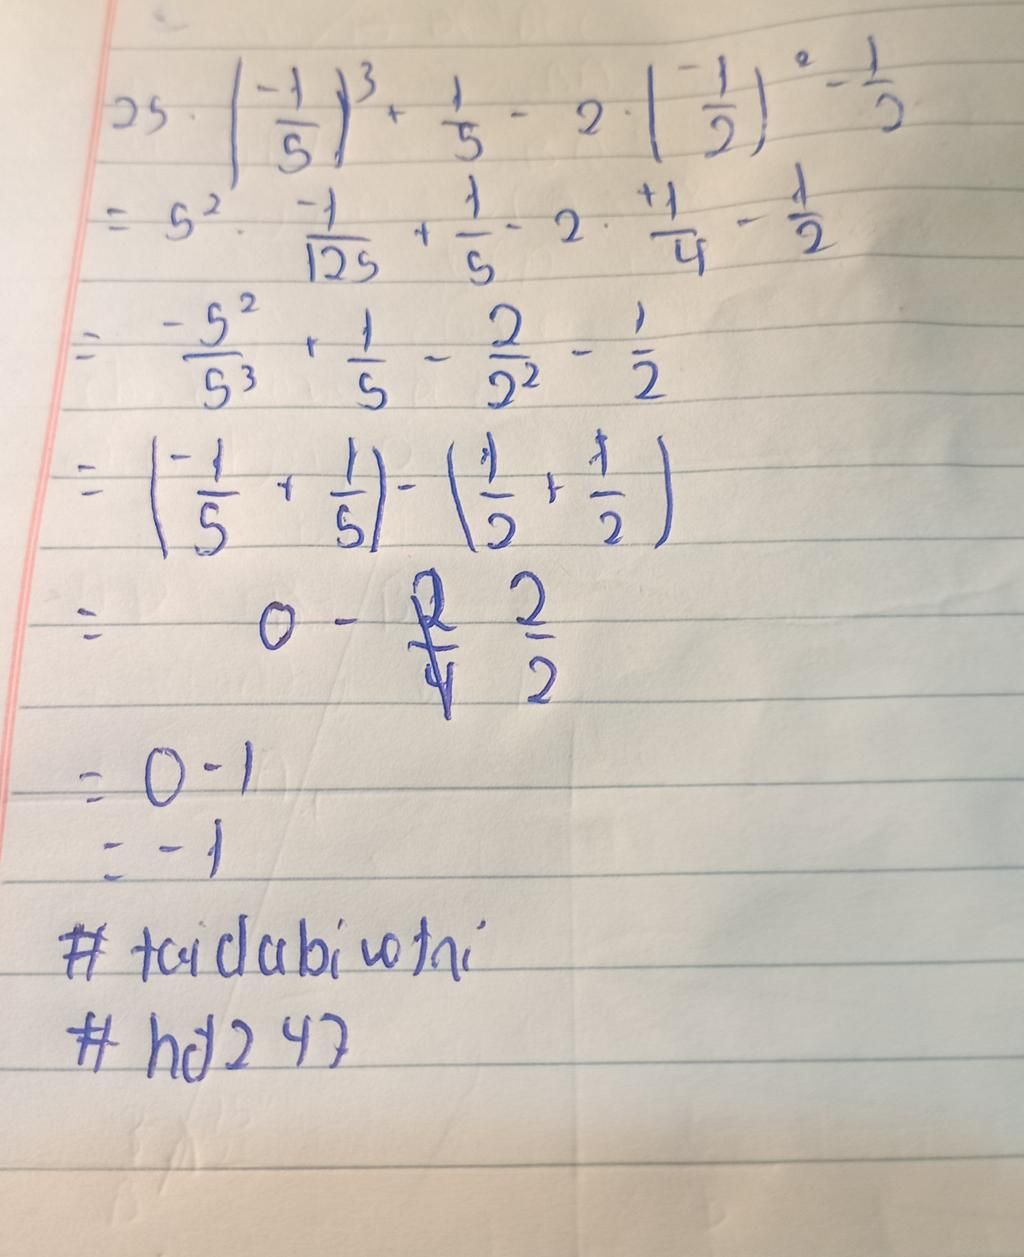 25 . (-1/5)³ + 1/5 - 2 . (-1/2)² - 1/2
= 5² . -1/125 + 1/5 - 2 . +1/4 - 1/2
= -5²/5³ + 1/5 - 2/2² - 1/2
= (-1/5 + 1/5) - (1/2 + 1/2)
= 0 - 2/2
= 0 - 1
= - 1
# taidabivotri
# hd247